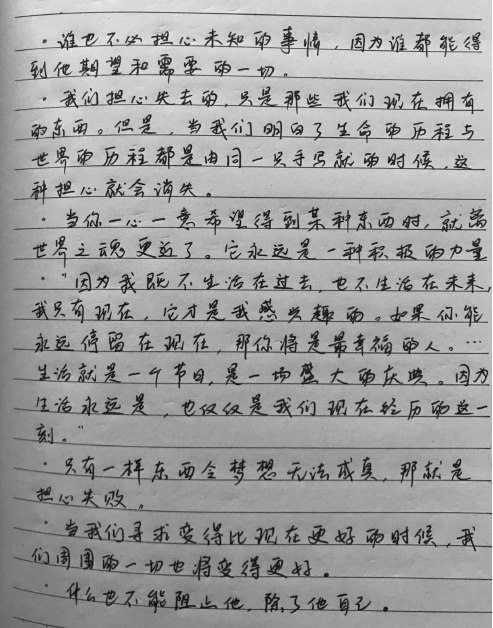 · 谁也不必担心未知的事情，因为谁都能得
到他期望和需要的一切。
· 我们担心失去的，只是那些我们现在拥有
的东西。但是，当我们明白了生命的历程与
世界的历程都是由同一只手写就的时候，这
种担心就会消失。
· 当你一心一意希望得到某种东西时，就离
世界之魂更近了。它永远是一种积极的力量
· “因为我既不生活在过去，也不生活在未来，
我只有现在，它才是我感兴趣的。如果你能
永远停留在现在，那你将是最幸福的人。…
生活就是一个节日，是一场盛大的庆典。因为
生活永远是，也仅仅是我们现在经历的这一
刻。”
· 只有一样东西令梦想无法成真，那就是
担心失败。
· 当我们寻求变得比现在更好的时候，我
们周围的一切也将变得更好。
· 什么也不能阻止他，除了他自己。